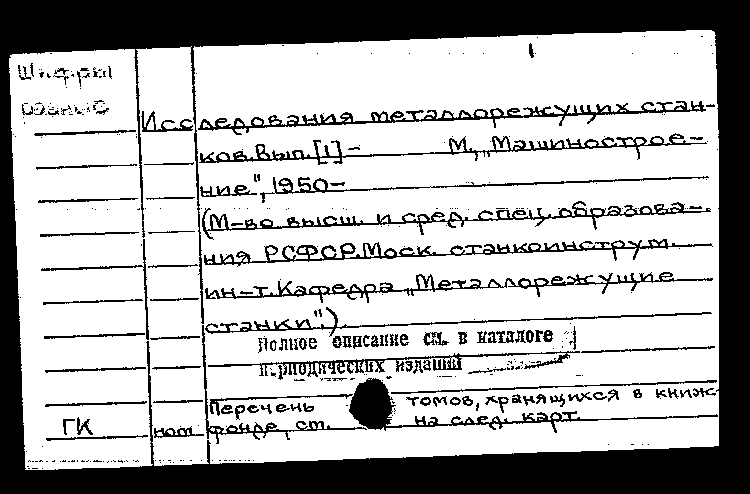 Шифры
разные
Исследования металлорежущих стан-
ков. Вып. [1] - М., „Машинострое-
ние", 1950-
(М-во высш. и сред. спец. образова-
ния РСФСР. Моск. станкоинструм.
ин-т. Кафедра „Металлорежущие
станки".)
Полное описание см. в каталоге
периодических изданий
Перечень томов, хранящихся в книж.
ГК фонде, см. на след. карт.